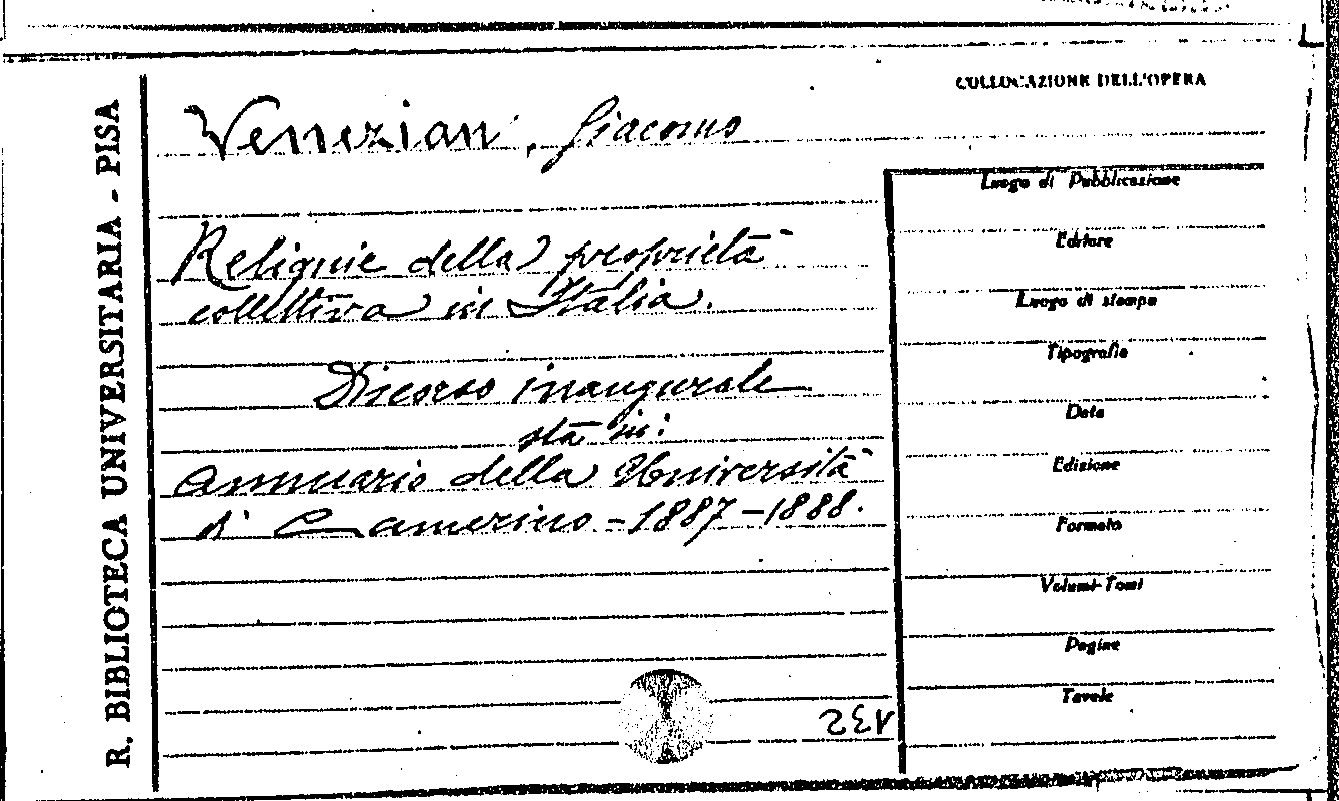 COLLOCAZIONE DELL'OPERA
Venezian, Giacomo
Reliquie della proprietà
collettiva in Italia.
Dicorso inaugurale
sta in:
Annuario della Università
di Camerino - 1887-1888.
R. BIBLIOTECA UNIVERSITARIA - PISA
Luogo di Pubblicazione
Editore
Luogo di stampa
Tipografia
Data
Edizione
Formato
Volumi-Tomi
Pagine
Tavole